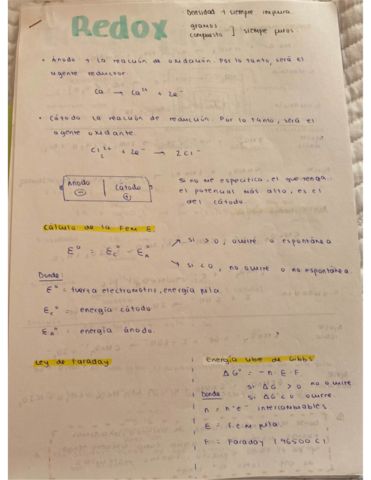 Redox
Densidad → siempre impura
gramos
compuesto ] siempre puros
• Ánodo → La reacción de oxidación. Por lo tanto, será el
agente reductor
Ca → Ca²⁺ + 2e⁻
• Cátodo La reacción de reducción. Por lo tanto, será el
agente oxidante.
+ 2e⁻ → 2Cl⁻
Ánodo
⊖
Cátodo
⊕
Si no me especifica, el que tenga
el potencial más alto, es el
del cátodo.
Cálculo de la Fem E
E° = Ec° - En°
→ si > 0, ocurre o espontánea
↘ si < 0, no ocurre o no espontánea
Donde:
E° = fuerza electromotriz, energía pila.
Ec° = energía cátodo
En° = energía ánodo.
Ley de Faraday
Energía libre de Gibbs
ΔG° = -n E·F
si ΔG > 0 no ocurre
Donde: si ΔG < 0 ocurre.
n = nº e⁻ intercambiables
E = f.e.m pila
F = Faraday (96500 C)